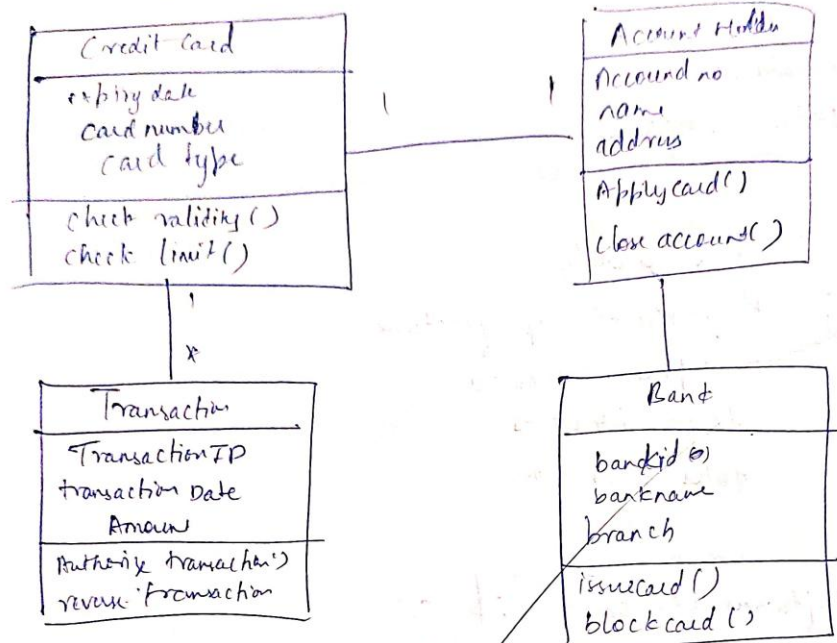 Credit Card
expiry date
card number
card type
check validity()
check limit()
1
1
Account Holder
Accound no
name
address
Apply card()
close account()
1
*
Transaction
Transaction ID
transaction Date
Amoun
Authorize transaction()
reverse transaction
Bank
bankid
bankname
branch
issuecard()
blockcard()